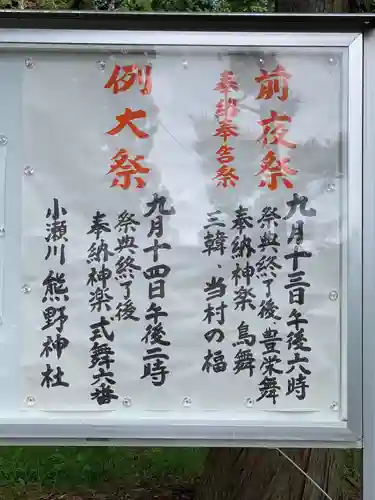 前夜祭
奉納奉告祭
九月十三日午後六時
祭典終了後 豊栄舞
奉納神楽 鳥舞
三韓、当村の福
例大祭
九月十四日午後二時
祭典終了後
奉納神楽式舞六番
小瀬川 熊野神社